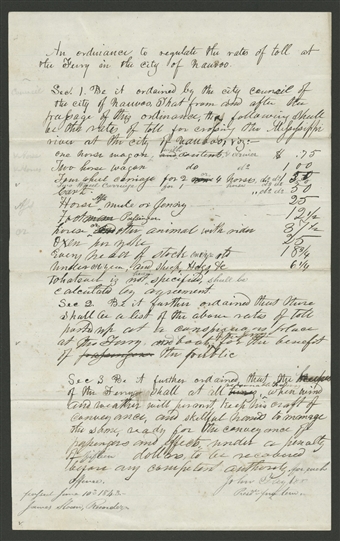 An ordinance to regulate the rates of toll at
the Ferry in the city of Nauvoo.
Sec 1. Be it ordained by the city council of
the city of Nauvoo, that from and after the
passage of this ordinance, the following shall
be the rates of toll for crossing the Mississippi
river at the city of Nauvoo, viz:—
one horse wagon, $ .75
Two horse wagon do 1 00
for 2 4 horses, do
50
Horse mule or Jenny 25
Footman 12 1/2
horse or other animal with rider 37 1/2
Oxen pr yoke 25
Every head of stock 18 3/4
under and sheep, Hogs &c 6 1/4
Whatever is not specified shall be
calculated by agreement.
Sec 2. Be it further ordained that there
shall be a list of the above rates of toll
posted up at a conspicuous place
at the Ferry for the benefit
of the public
Sec 3 Be it further ordained that the
of the Ferry shall at all when wind
and weather will permit, keep craft of
conveyance, and skilful hands to manage
the same, ready for the conveyance of
passengers and effects, under a penalty
of fifteen dollars, to be recovered
before any competent authority for each
offence.
passed June 10th 1842
James Sloan, Recorder